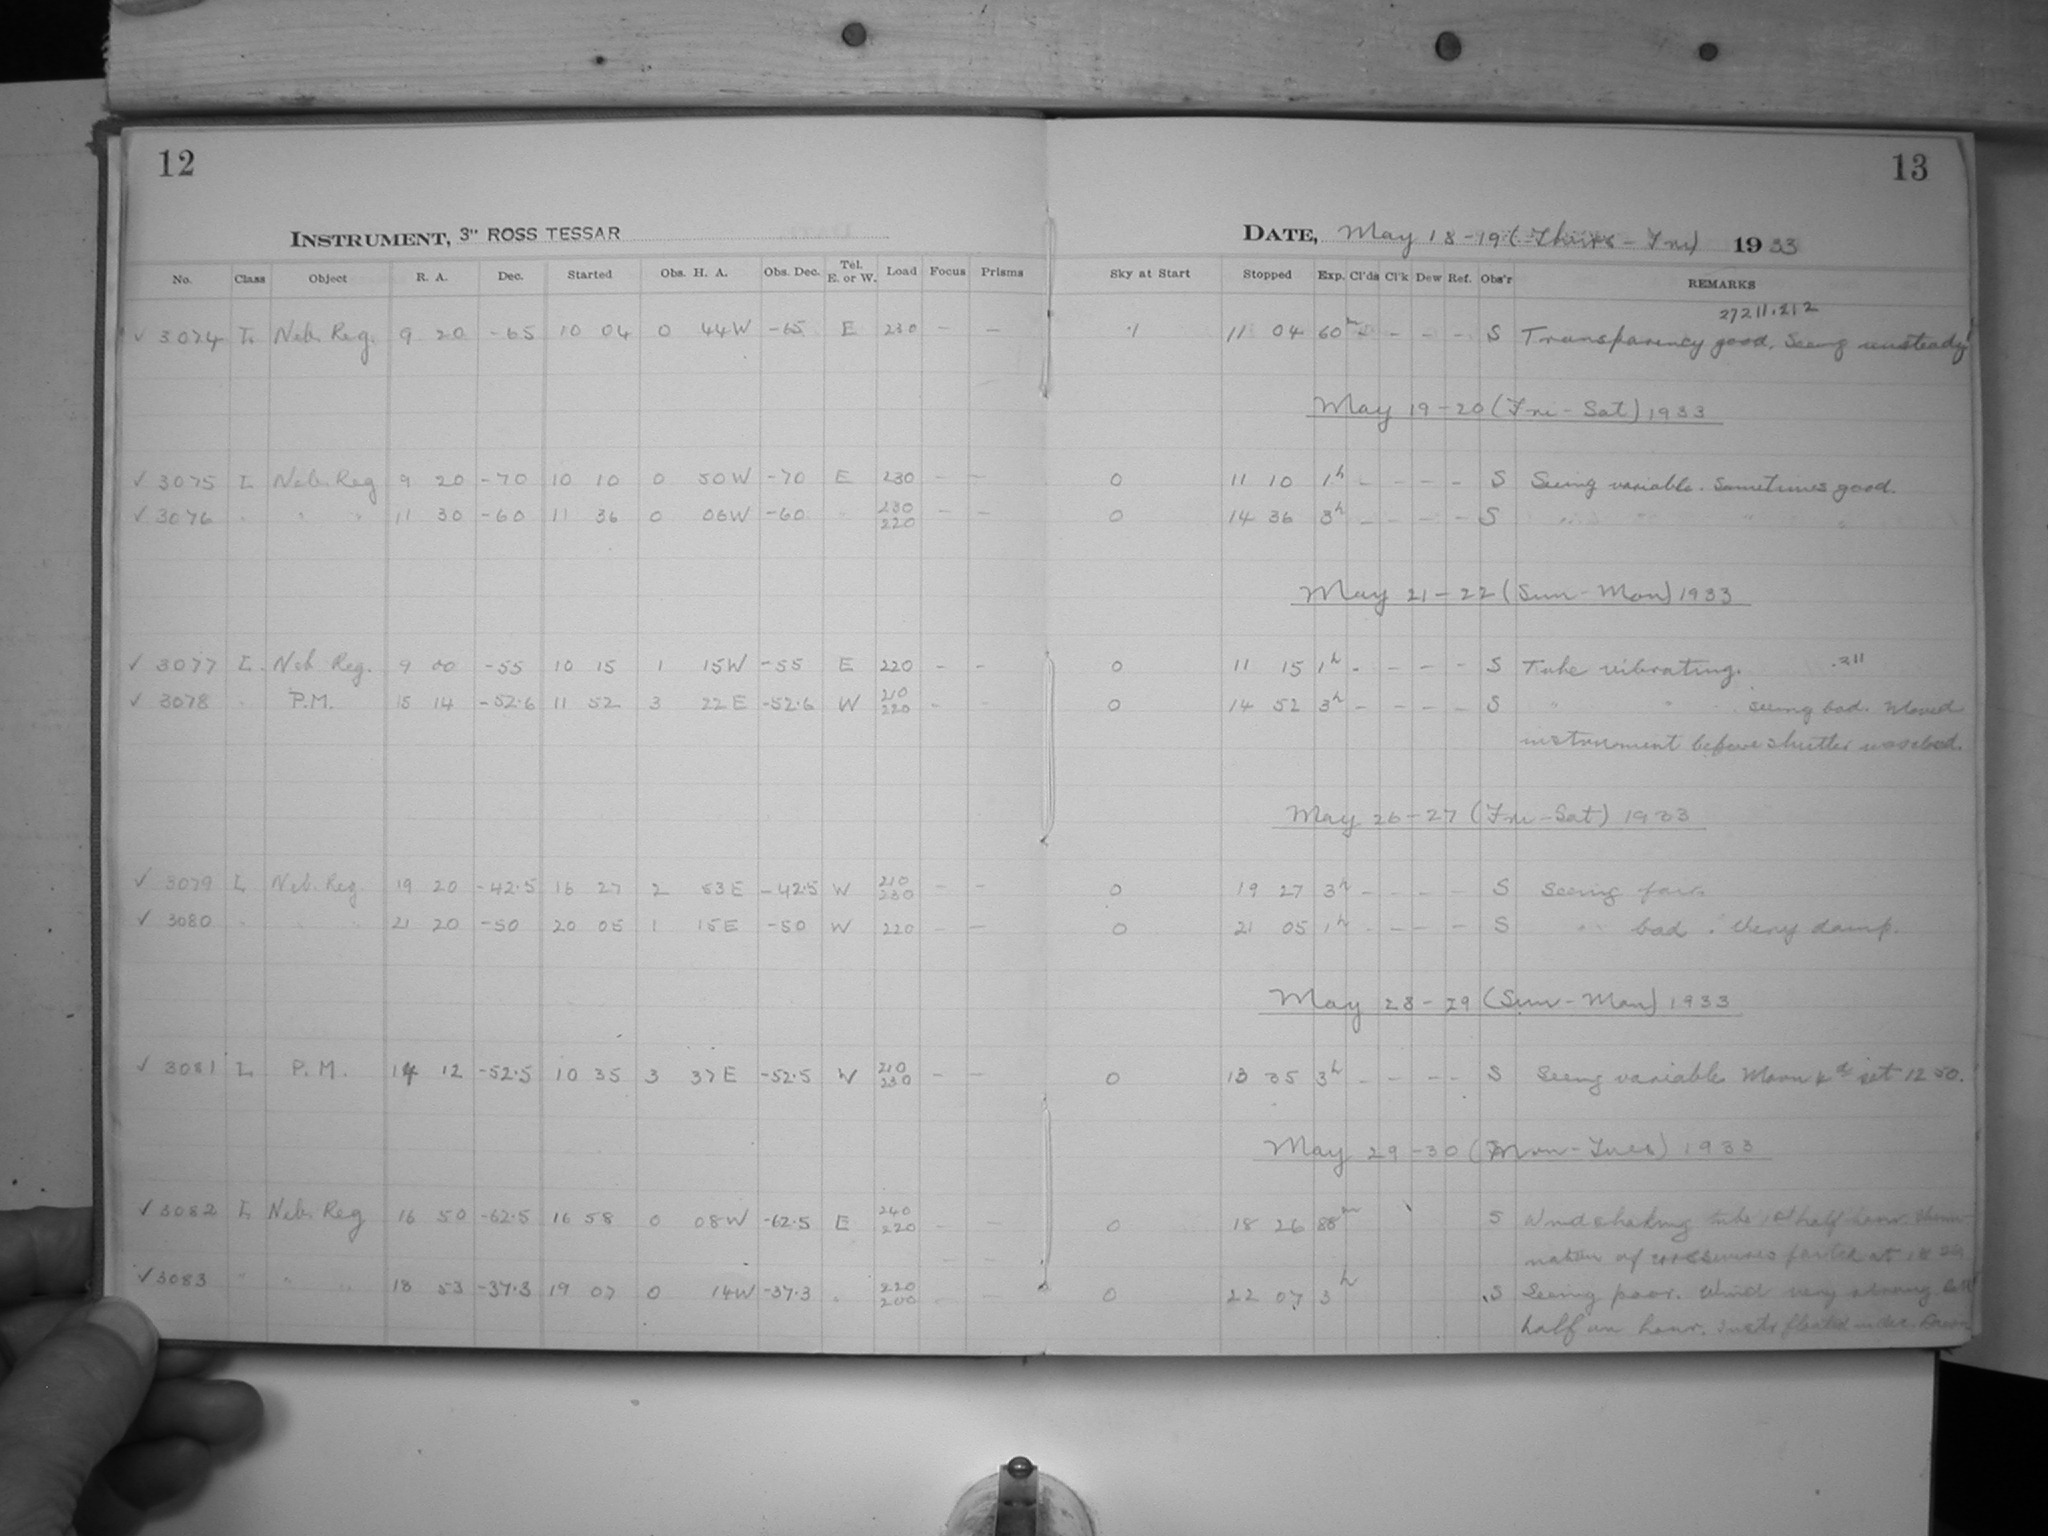 12
13
INSTRUMENT, 3" ROSS TESSAR
DATE, May 18-19 (Thurs-Fri) 1933
No. Class Object R. A. Dec. Started Obs. H. A. Obs. Dec. Tel. E. or W. Load Focus Prisms Sky at Start Stopped Exp. Cl'ds Cl'k Dew Ref. Obs'r REMARKS
27211.212
✓ 3074 L Neb. Reg. 9 20 -65 10 04 0 44W -65 E 230 - - 1 11 04 60m - - - - S Transparency good. Seeing unsteady
May 19-20 (Fri-Sat) 1933
✓ 3075 L Neb. Reg 9 20 -70 10 10 0 50W -70 E 230 - - 0 11 10 1h - - - - S Seeing variable. Sometimes good.
✓ 3076 " " " 11 30 -60 11 36 0 06W -60 " 230 220 - - 0 14 36 3h - - - - S " " " "
May 21-22 (Sun-Mon) 1933
✓ 3077 L Neb. Reg. 9 00 -55 10 15 1 15W -55 E 220 - - 0 11 15 1h - - - - S Tube vibrating. .211
✓ 3078 " P.M. 15 14 -52.6 11 52 3 22E -52.6 W 210 220 - - 0 14 52 3h - - - - S " " seeing bad. Moved
instrument before shutter was closed.
May 26-27 (Fri-Sat) 1933
✓ 3079 L Neb. Reg. 19 20 -42.5 16 27 2 53E -42.5 W 210 230 - - 0 19 27 3h - - - - S Seeing fair.
✓ 3080 " " " 21 20 -50 20 05 1 15E -50 W 220 - - 0 21 05 1h - - - - S " bad. Very damp.
May 28-29 (Sun-Mon) 1933
✓ 3081 L P.M. 14 12 -52.5 10 35 3 37E -52.5 W 210 230 - - 0 13 35 3h - - - - S Seeing variable Moon set 12 50.
May 29-30 (Mon-Tues) 1933
✓ 3082 L Neb. Reg 16 50 -62.5 16 58 0 08W -62.5 E 240 220 - - 0 18 26 88m S Wind shaking tube 1st half hour. Illumi-
nation of crosswires failed at 18 26
✓ 3083 " " " 18 53 -37.3 19 07 0 14W -37.3 " 220 200 - - 0 22 07 3h S Seeing poor. Wind very strong last
half an hour.